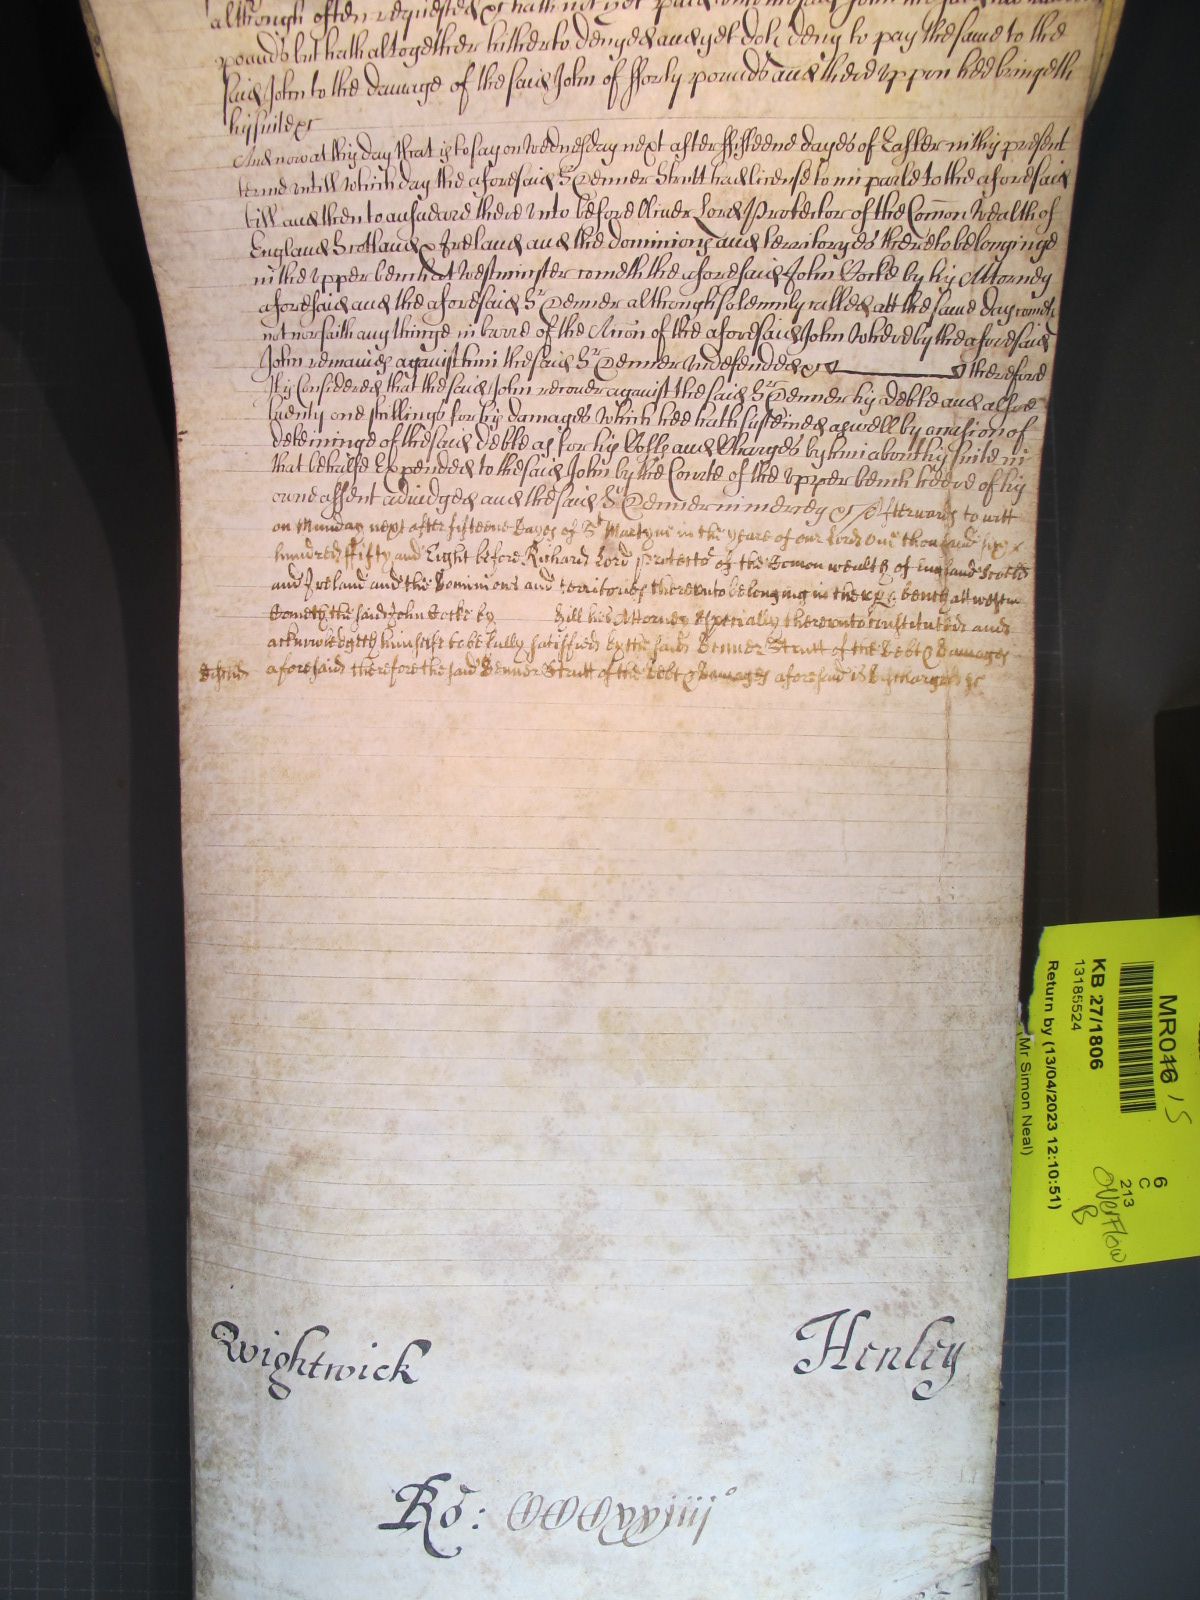 although often requested &c hath not yet paid unto the said John the said
pounds but hath altogether hitherto denyed and yet doth deny to pay the same to the
said John to the damage of the said John of fforty pounds and thereuppon hee bringeth
his suite &c
And now at this day that is to say on Wednesday next after fifteene dayes of Easter in this present
terme untill which day the aforesaid Sr Denner Strutt had license to imparle to the aforesaid
bill and then to answeare thereunto before Oliver Lord Protector of the Common Wealth of
England Scotland & Ireland and the dominions and territoryes thereto belonginge
in the upper bench at Westminster cometh the aforesaid John Cocke by his Attorney
aforesaid and the aforesaid Sr Denner although solemnly called att the same day cometh
not nor saith any thinge in barre of the Accon of the aforesaid John whereby the aforesaid
John remaines against him the said Sr Denner undefended &c therefore
It is Considered that the said John recover against the said Sr Denner his debte and alsoe
twenty one shillings for his damages which hee hath susteined aswell by occasion of
deteininge of the said debte as for his Costs and Charges by him about his suite in
that behalfe Expended to the said John by the Courte of the upper bench heere of his
owne assent adiudged and the said Sr Denner in mercy &c Afterwards to witt
on Munday next after fifteene dayes of St Martyne in the yeare of our Lord One thousand six
hundred ffifty and Eight before Richard Lord protector of the Comon wealth of England Scotld
and Ireland and the Dominions and territories thereunto belonging in the upp bench att westm
Cometh the said John Cocke by Hill his Attorney Especially thereunto constituted and
acknowledgeth himselfe to be fully satisfied by the said Denner Strutt of the Debt & Damages
aforesaid therefore the said Denner Strutt of the debt & damages aforesaid is dischargd &c
Wightwick Henley
Ro: CCCCxxiiiio
MR016 15
KB 27/1806
13185524
Return by (13/04/2023 12:10:51)
(Mr Simon Neal)
6
C
213
Overflow
B